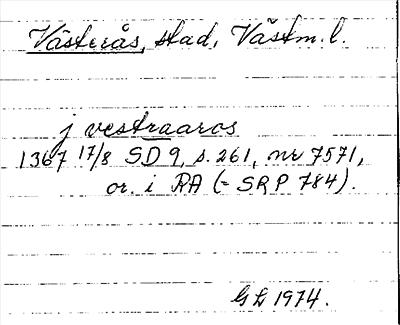 Västerås, stad, Västm. l.
j vestraaros
1367 17/8 SD 9, s. 261, nr 7571,
or. i RA (= SRP 784).
GL 1974.